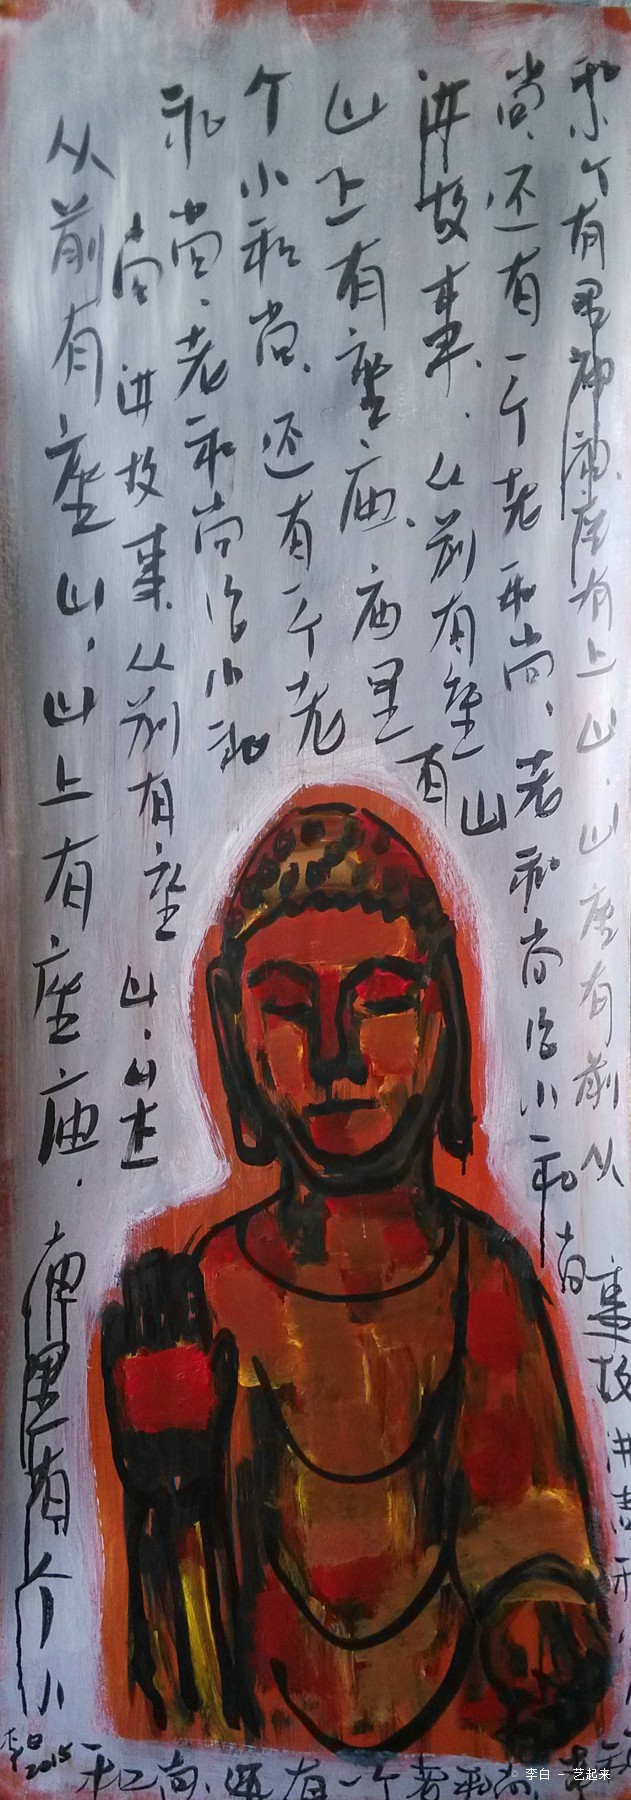 从前有座山，山上有座庙，庙里有个小
和尚，还有一个老和尚，老
和小个有里庙，庙座有上山，山座有前从
事故讲
尚，还有一个老和尚，老和尚给小和尚
讲故事，从前有座山
山上有座庙，庙里有
个小和尚，还有一个老
和尚，老和尚给小和
尚讲故事，从前有座山，山上
李白
2015
李白 - 艺起来